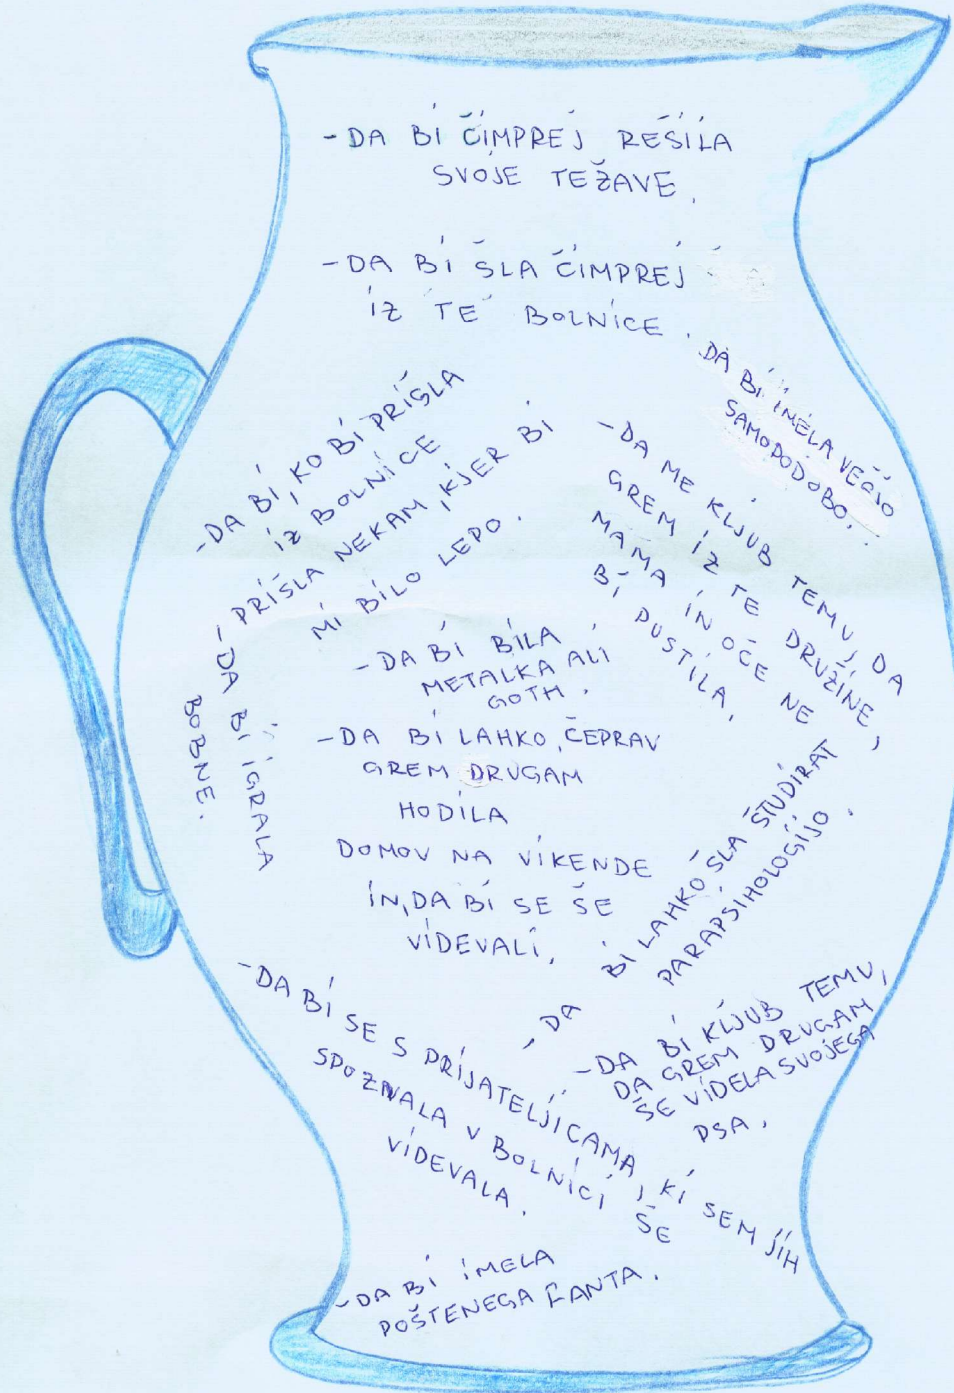 -DA BI ČIMPREJ REŠILA
SVOJE TEŽAVE.
-DA BI ŠLA ČIMPREJ
IZ TE BOLNICE.
DA BI IMELA VEČJO
SAMOPODOBO.
-DA BI, KO BI PRIŠLA
IZ BOLNICE
PRIŠLA NEKAM, KJER BI
MI BILO LEPO.
-DA ME KLJUB TEMU, DA
GREM IZ TE DRUŽINE,
MAMA IN OČE NE
BI PUSTILA.
-DA BI BILA
METALKA ALI
GOTH.
-DA BI IGRALA
BOBNE.
-DA BI LAHKO, ČEPRAV
GREM DRUGAM
HODILA
DOMOV NA VIKENDE
IN, DA BI SE ŠE
VIDEVALI.
-DA BI LAHKO ŠLA ŠTUDIRAT
PARAPSIHOLOGIJO.
-DA BI KLJUB TEMU,
DA GREM DRUGAM
ŠE VIDELA SVOJEGA
PSA.
-DA BI SE S PRIJATELJICAMA, KI SEM JIH
SPOZNALA V BOLNICI ŠE
VIDEVALA.
-DA BI IMELA
POŠTENEGA FANTA.